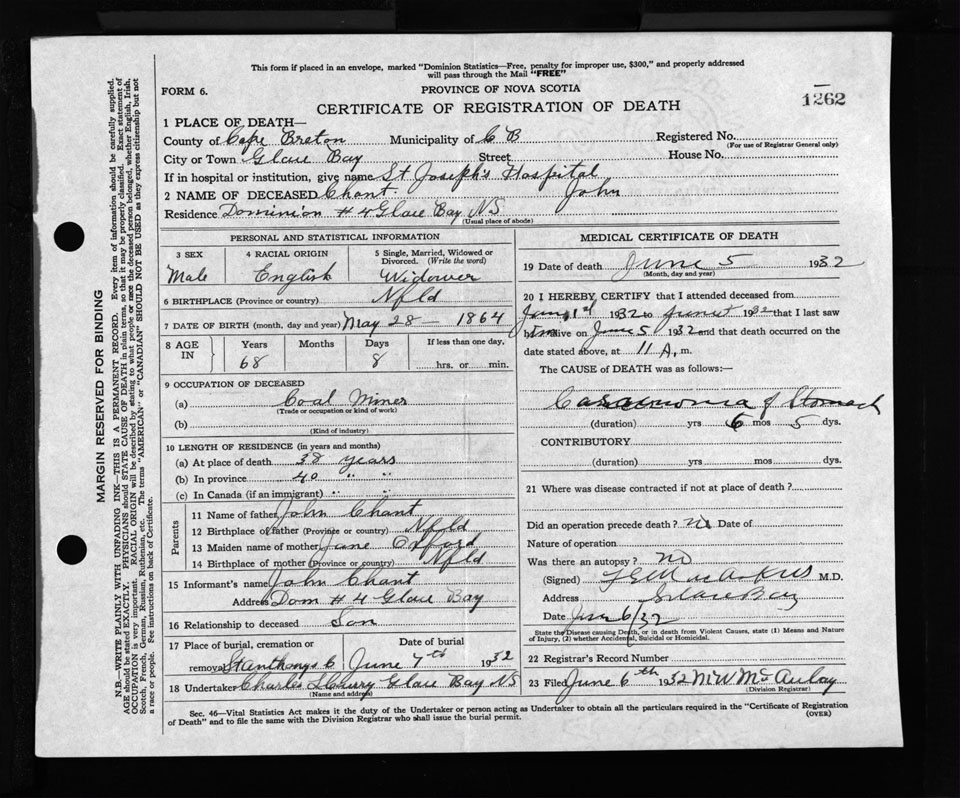 This form if placed in an envelope, marked "Dominion Statistics—Free, penalty for improper use, $300," and properly addressed
will pass through the Mail "FREE"
FORM 6.
PROVINCE OF NOVA SCOTIA
1262
CERTIFICATE OF REGISTRATION OF DEATH
1 PLACE OF DEATH—
County of Cape Breton Municipality of C B Registered No.
(For use of Registrar General only)
City or Town Glace Bay Street House No.
If in hospital or institution, give name St Joseph's Hospital
2 NAME OF DECEASED Chant. John
Residence Dominion # 4 Glace Bay NS
(Usual place of abode)
PERSONAL AND STATISTICAL INFORMATION
3 SEX 4 RACIAL ORIGIN 5 Single, Married, Widowed or
Divorced. (Write the word)
Male English Widower
6 BIRTHPLACE (Province or country) Nfld
7 DATE OF BIRTH (month, day and year) May 28 - 1864
8 AGE IN Years Months Days If less than one day,
68 8 hrs. or min.
9 OCCUPATION OF DECEASED
(a) Coal Miner
(Trade or occupation or kind of work)
(b)
(Kind of industry)
10 LENGTH OF RESIDENCE (in years and months)
(a) At place of death 38 years
(b) In province 40 " "
(c) In Canada (if an immigrant) " "
Parents
11 Name of father John Chant
12 Birthplace of father (Province or country) Nfld
13 Maiden name of mother Jane Oxford
14 Birthplace of mother (Province or country) Nfld
15 Informant's name John Chant
Address Dom # 4 Glace Bay
16 Relationship to deceased Son
17 Place of burial, cremation or Date of burial
removal St Anthonys C June 7th 1932
18 Undertaker Charles Curry Glace Bay NS
(Name and address)
MEDICAL CERTIFICATE OF DEATH
19 Date of death June 5 1932
(Month, day and year)
20 I HEREBY CERTIFY that I attended deceased from
1st 1932 to 1932 that I last saw
him alive on June 5 1932 and that death occurred on
date stated above, at 11 A. m.
The CAUSE of DEATH was as follows:—
Carcinoma of Stomach
(duration) yrs 6 mos 5 dys.
CONTRIBUTORY
(duration) yrs mos dys.
21 Where was disease contracted if not at place of death?
Did an operation precede death? no Date of
Nature of operation
Was there an autopsy? no
(Signed) M.D.
Address Glace Bay
Date June 6/32
State the Disease causing Death, or in death from Violent Causes, state (1) Means and Nature
of Injury, (2) whether Accidental, Suicidal or Homicidal.
22 Registrar's Record Number
23 Filed June 6th 1932 M W McAulay
(Division Registrar)
Sec. 46—Vital Statistics Act makes it the duty of the Undertaker or person acting as Undertaker to obtain all the particulars required in the "Certificate of Registration
of Death" and to file the same with the Division Registrar who shall issue the burial permit.
(OVER)
MARGIN RESERVED FOR BINDING
N.B.—WRITE PLAINLY WITH UNFADING INK—THIS IS A PERMANENT RECORD. Every item of information should be carefully supplied.
AGE should be stated EXACTLY. PHYSICIANS should STATE CAUSE OF DEATH in plain terms, so that it may be properly classified. Exact statement of
OCCUPATION is very important. RACIAL ORIGIN will be described by stating to what people or race the deceased person belonged, whether English, Irish,
Scotch, French, German, Russian, Ruthenian, etc. The terms "AMERICAN" or "CANADIAN" SHOULD NOT BE USED as they express citizenship but not
a race or people. Fee instructions on back of Certificate.